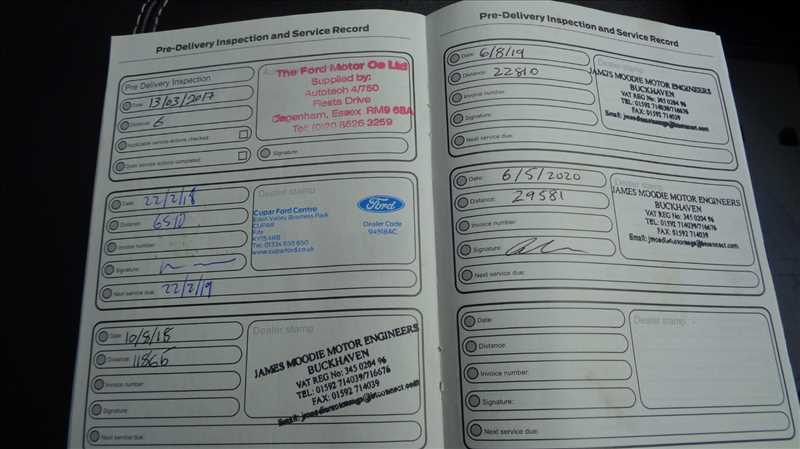 Pre-Delivery Inspection and Service Record
Pre Delivery Inspection
Date: 13/03/2017
Distance: 6
Applicable service actions checked:
Open service actions completed:
The Ford Motor Co Ltd
Supplied by:
Autotech 4/750
Fiesta Drive
Dagenham, Essex RM9 6BA
Signature:
Date: 22/2/18
Distance: 6510
Invoice number:
Signature:
Next service due: 22/2/19
Dealer stamp
Cupar Ford Centre
Eden Valley Business Park
CUPAR
Fife
KY15 4RB
www.cuparford.co.uk
Ford
Dealer Code
94918AC
Date: 10/8/18
Distance: 11866
Invoice number:
Signature:
Next service due:
Dealer stamp
JAMES MOODIE MOTOR ENGINEERS
BUCKHAVEN
VAT REG No: 345 0284 96
TEL: 01592 714039/716676
FAX: 01592 714039
Pre-Delivery Inspection and Service Record
Date: 6/8/19
Distance: 22810
Invoice number:
Signature:
Next service due:
Dealer stamp
JAMES MOODIE MOTOR ENGINEERS
BUCKHAVEN
VAT REG No: 345 0284 96
TEL: 01592 714039/716676
FAX: 01592 714039
Date: 6/5/2020
Distance: 29581
Invoice number:
Signature:
Next service due:
JAMES MOODIE MOTOR ENGINEERS
BUCKHAVEN
VAT REG No: 345 0284 96
TEL: 01592 714039/716676
FAX: 01592 714039
Date:
Distance:
Invoice number:
Signature:
Next service due:
Dealer stamp